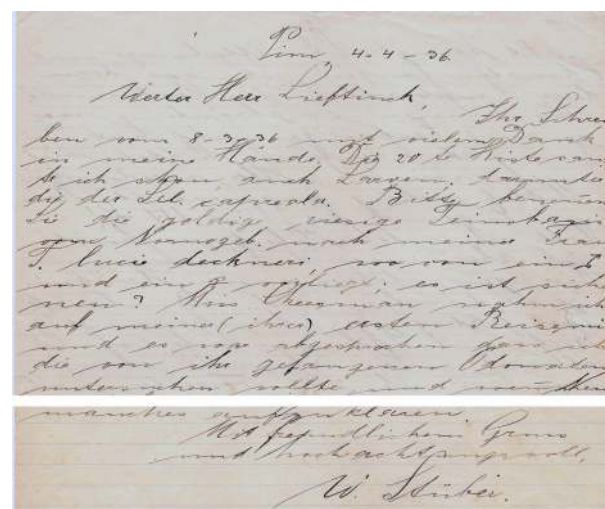 Pim, 4-4-36.
Werter Herr Lieftinck,
Ihr Schrei
ben vom 8-3-36 mit vielen Dank
in meine Hände. Die 20te Kiste san
te ich schon, auch Larven, darunter
die der Lel. capreola. Bitte benennen
Sie die goldige riesige Teinobasis
vom Normogeb. nach meiner Frau
T. lucie deckneri, wo von ein
und ein vorliegt; es ist sicher
neu? Miss Cheesman nahm ich
auf meiner (ihrer) ersten Reise mit
und es war abgesprochen dass ich
die von ihr gefangenen Odonaten
untersuchen sollte und
manches aufzuklären
Mit freundlichem Gruss
und hochachtungsvoll,
W. Stüber.